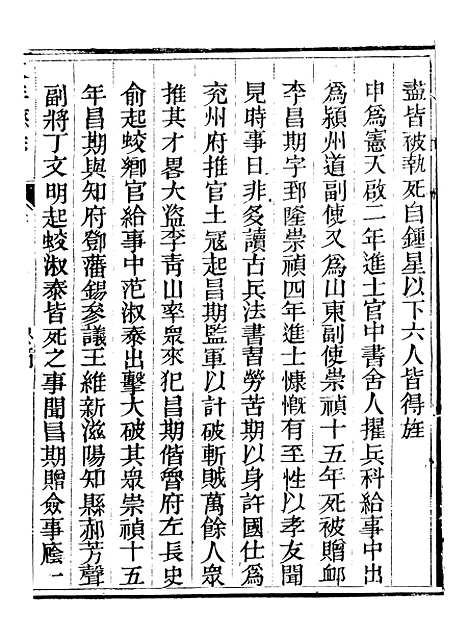 盡皆被執死自鍾星以下六人皆得旌
申為憲天啟二年進士官中書舍人擢兵科給事中出
為潁州道副使又為山東副使崇禎十五年死被贈卹
李昌期字郅隆崇禎四年進士慷慨有至性以孝友聞
見時事日非多讀古兵法書習勞苦期以身許國仕為
兖州府推官土冦起昌期監軍以計破斬賊萬餘人衆
推其才畧大盜李青山率衆來犯昌期偕魯府左長史
俞起蛟鄉官給事中范淑泰出擊大破其衆崇禎十五
年昌期與知府鄧藩錫參議王維新滋陽知縣郝芳聲
副將丁文明起蛟淑泰皆死之事聞昌期贈僉事廕一